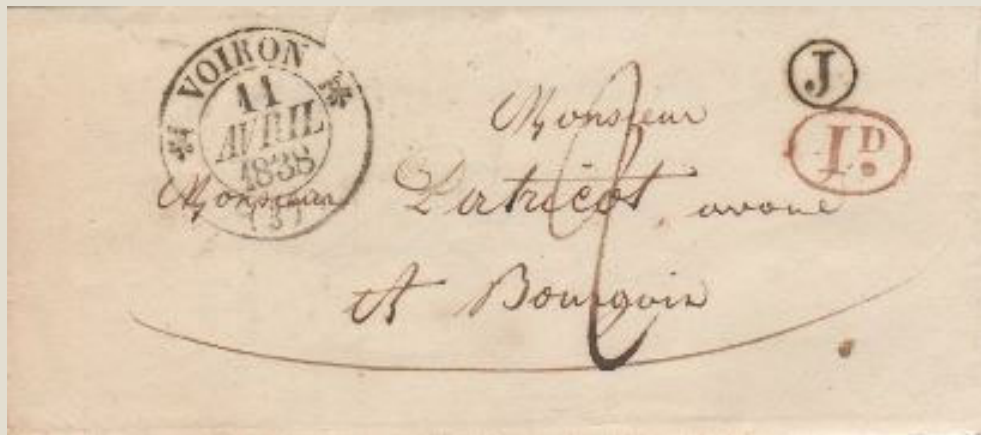 VOIRON
11
AVRIL
1838
(3)
J
1D
Monsieur
Monsieur
avoué
A Bourgoin
2